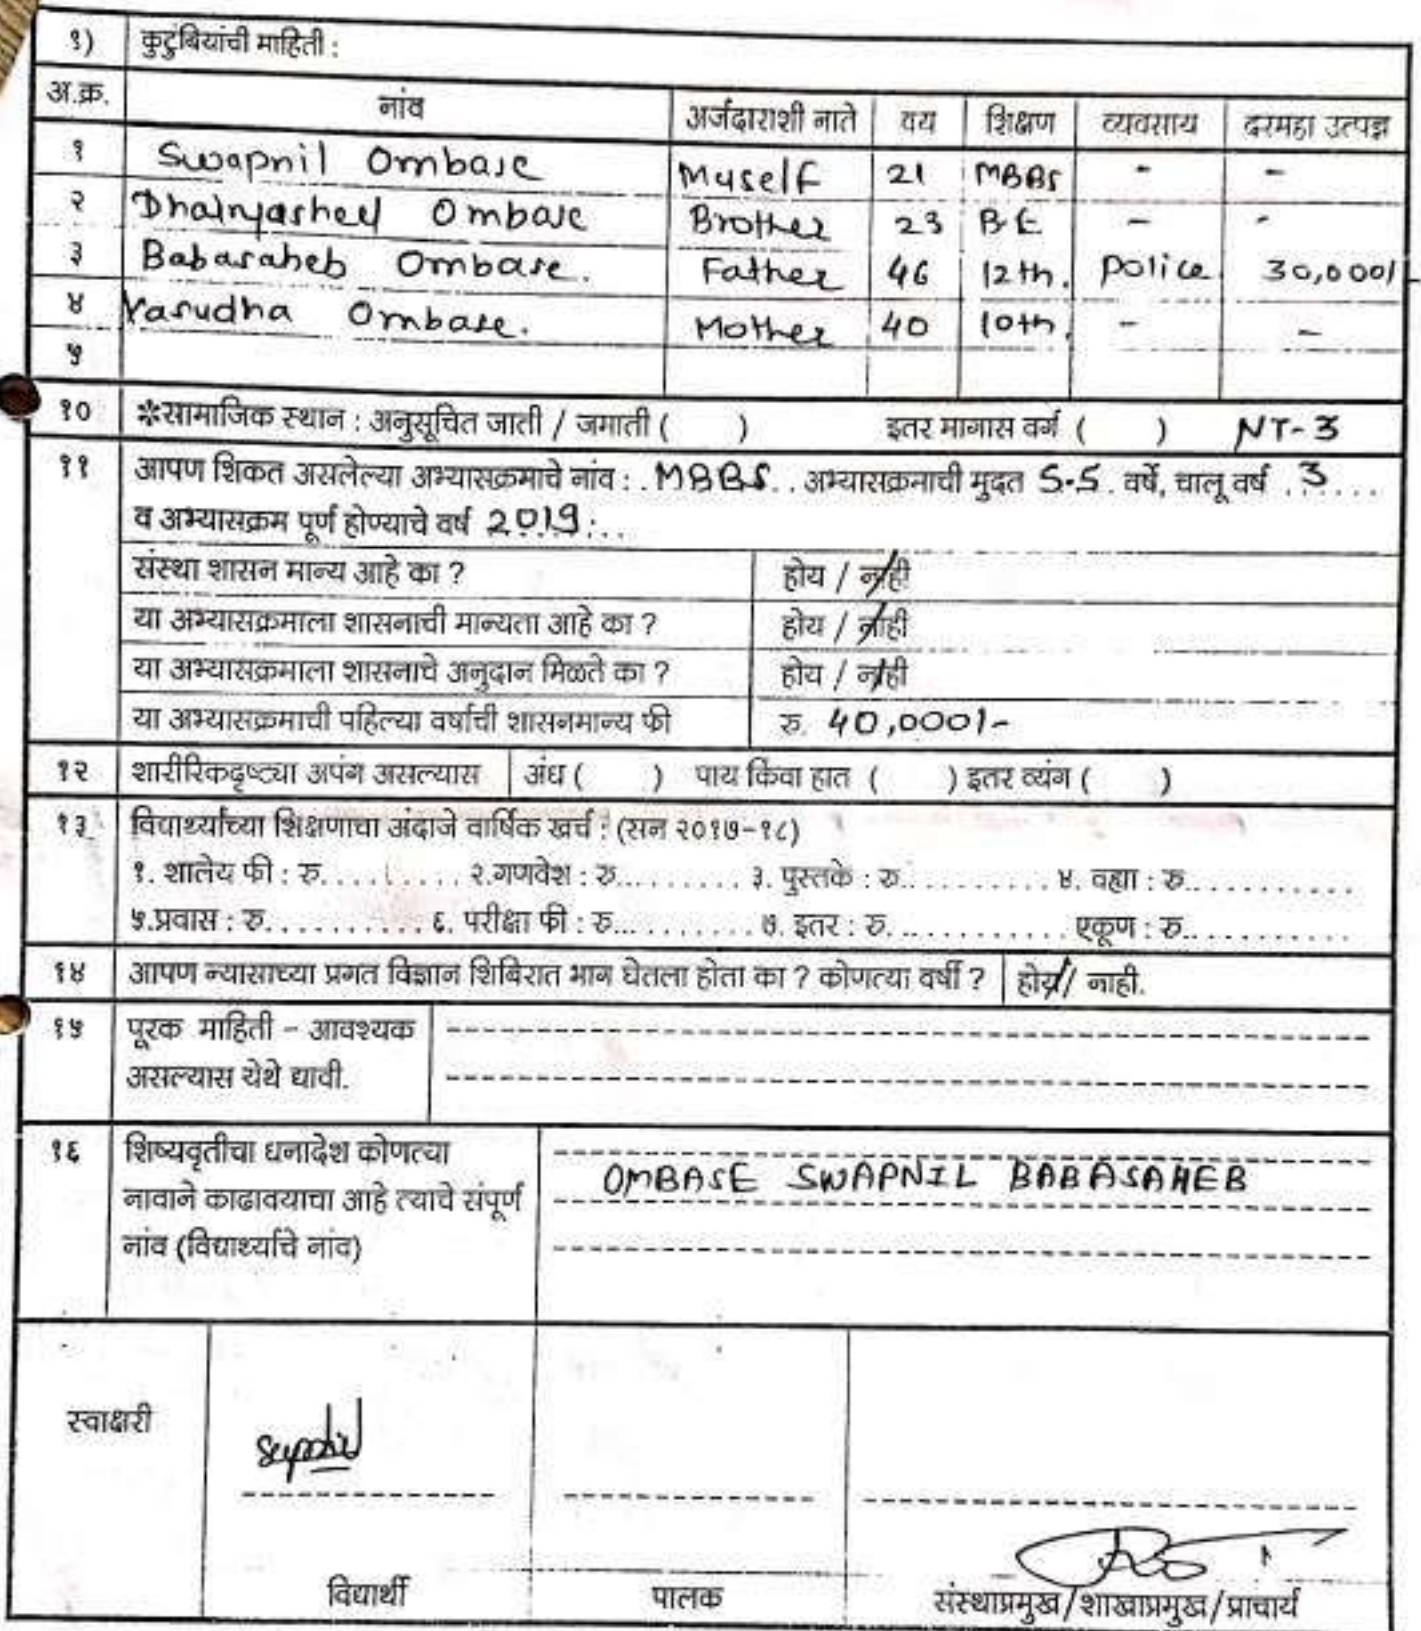 १) कुटुंबियांची माहिती :
अ.क्र. नांव अर्जदाराशी नाते वय शिक्षण व्यवसाय दरमहा उत्पन्न
१ Swapnil Ombase Myself 21 MBBS - -
२ Dhairyasheel Ombase Brother 23 B.E - -
३ Babasaheb Ombase. Father 46 12th. police 30,000/-
४ Vasudha Ombase. Mother 40 10th. - -
५
१० *सामाजिक स्थान : अनुसूचित जाती / जमाती ( ) इतर मागास वर्ग ( ) NT-3
११ आपण शिकत असलेल्या अभ्यासक्रमाचे नांव : . MBBS . . अभ्यासक्रमाची मुदत 5.5 . वर्षे, चालू वर्ष . 3 . . . .
व अभ्यासक्रम पूर्ण होण्याचे वर्ष 2019 . . .
संस्था शासन मान्य आहे का ? होय / नाही
या अभ्यासक्रमाला शासनाची मान्यता आहे का ? होय / नाही
या अभ्यासक्रमाला शासनाचे अनुदान मिळते का ? होय / नाही
या अभ्यासक्रमाची पहिल्या वर्षाची शासनमान्य फी रु. 40,000/-
१२ शारीरिकदृष्ट्या अपंग असल्यास अंध ( ) पाय किंवा हात ( ) इतर व्यंग ( )
१३ विद्यार्थ्यांच्या शिक्षणाचा अंदाजे वार्षिक खर्च : (सन २०१७-१८)
१. शालेय फी : रु. . . . . . . . . . २.गणवेश : रु. . . . . . . . . ३. पुस्तके : रु. . . . . . . . . . . ४. वह्या : रु. . . . . . . . . . . .
५.प्रवास : रु. . . . . . . . . . . ६. परीक्षा फी : रु. . . . . . . . . . ७. इतर : रु. . . . . . . . . . . . एकूण : रु. . . . . . . . . . . .
१४ आपण न्यासाच्या प्रगत विज्ञान शिबिरात भाग घेतला होता का ? कोणत्या वर्षी ? होय / नाही.
१५ पूरक माहिती - आवश्यक
असल्यास येथे द्यावी.
१६ शिष्यवृतीचा धनादेश कोणत्या
नावाने काढावयाचा आहे त्याचे संपूर्ण
नांव (विद्यार्थ्याचे नांव)
OMBASE SWAPNIL BABASAHEB
स्वाक्षरी
विद्यार्थी पालक संस्थाप्रमुख/शाखाप्रमुख/प्राचार्य